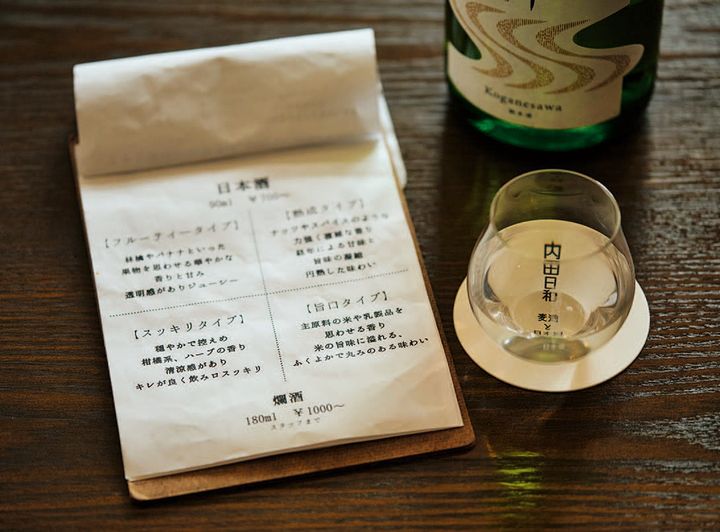 日本酒
90ml ￥700～
【フルーティータイプ】
林檎やバナナといった
果物を思わせる華やかな
香りと甘み
透明感がありジューシー
【熟成タイプ】
ナッツやスパイスのような
力強く濃縮な香り
経年による甘味と
旨味の凝縮
円熟した味わい
【スッキリタイプ】
穏やかで控えめ
柑橘系、ハーブの香り
清涼感があり
キレが良く飲み口スッキリ
【旨口タイプ】
主原料の米や乳製品を
思わせる香り
米の旨味に溢れる、
ふくよかで丸みのある味わい
爛酒
180ml ￥1000～
スタッフまで
Koganesawa
純米酒
内田日和
麦酒
と